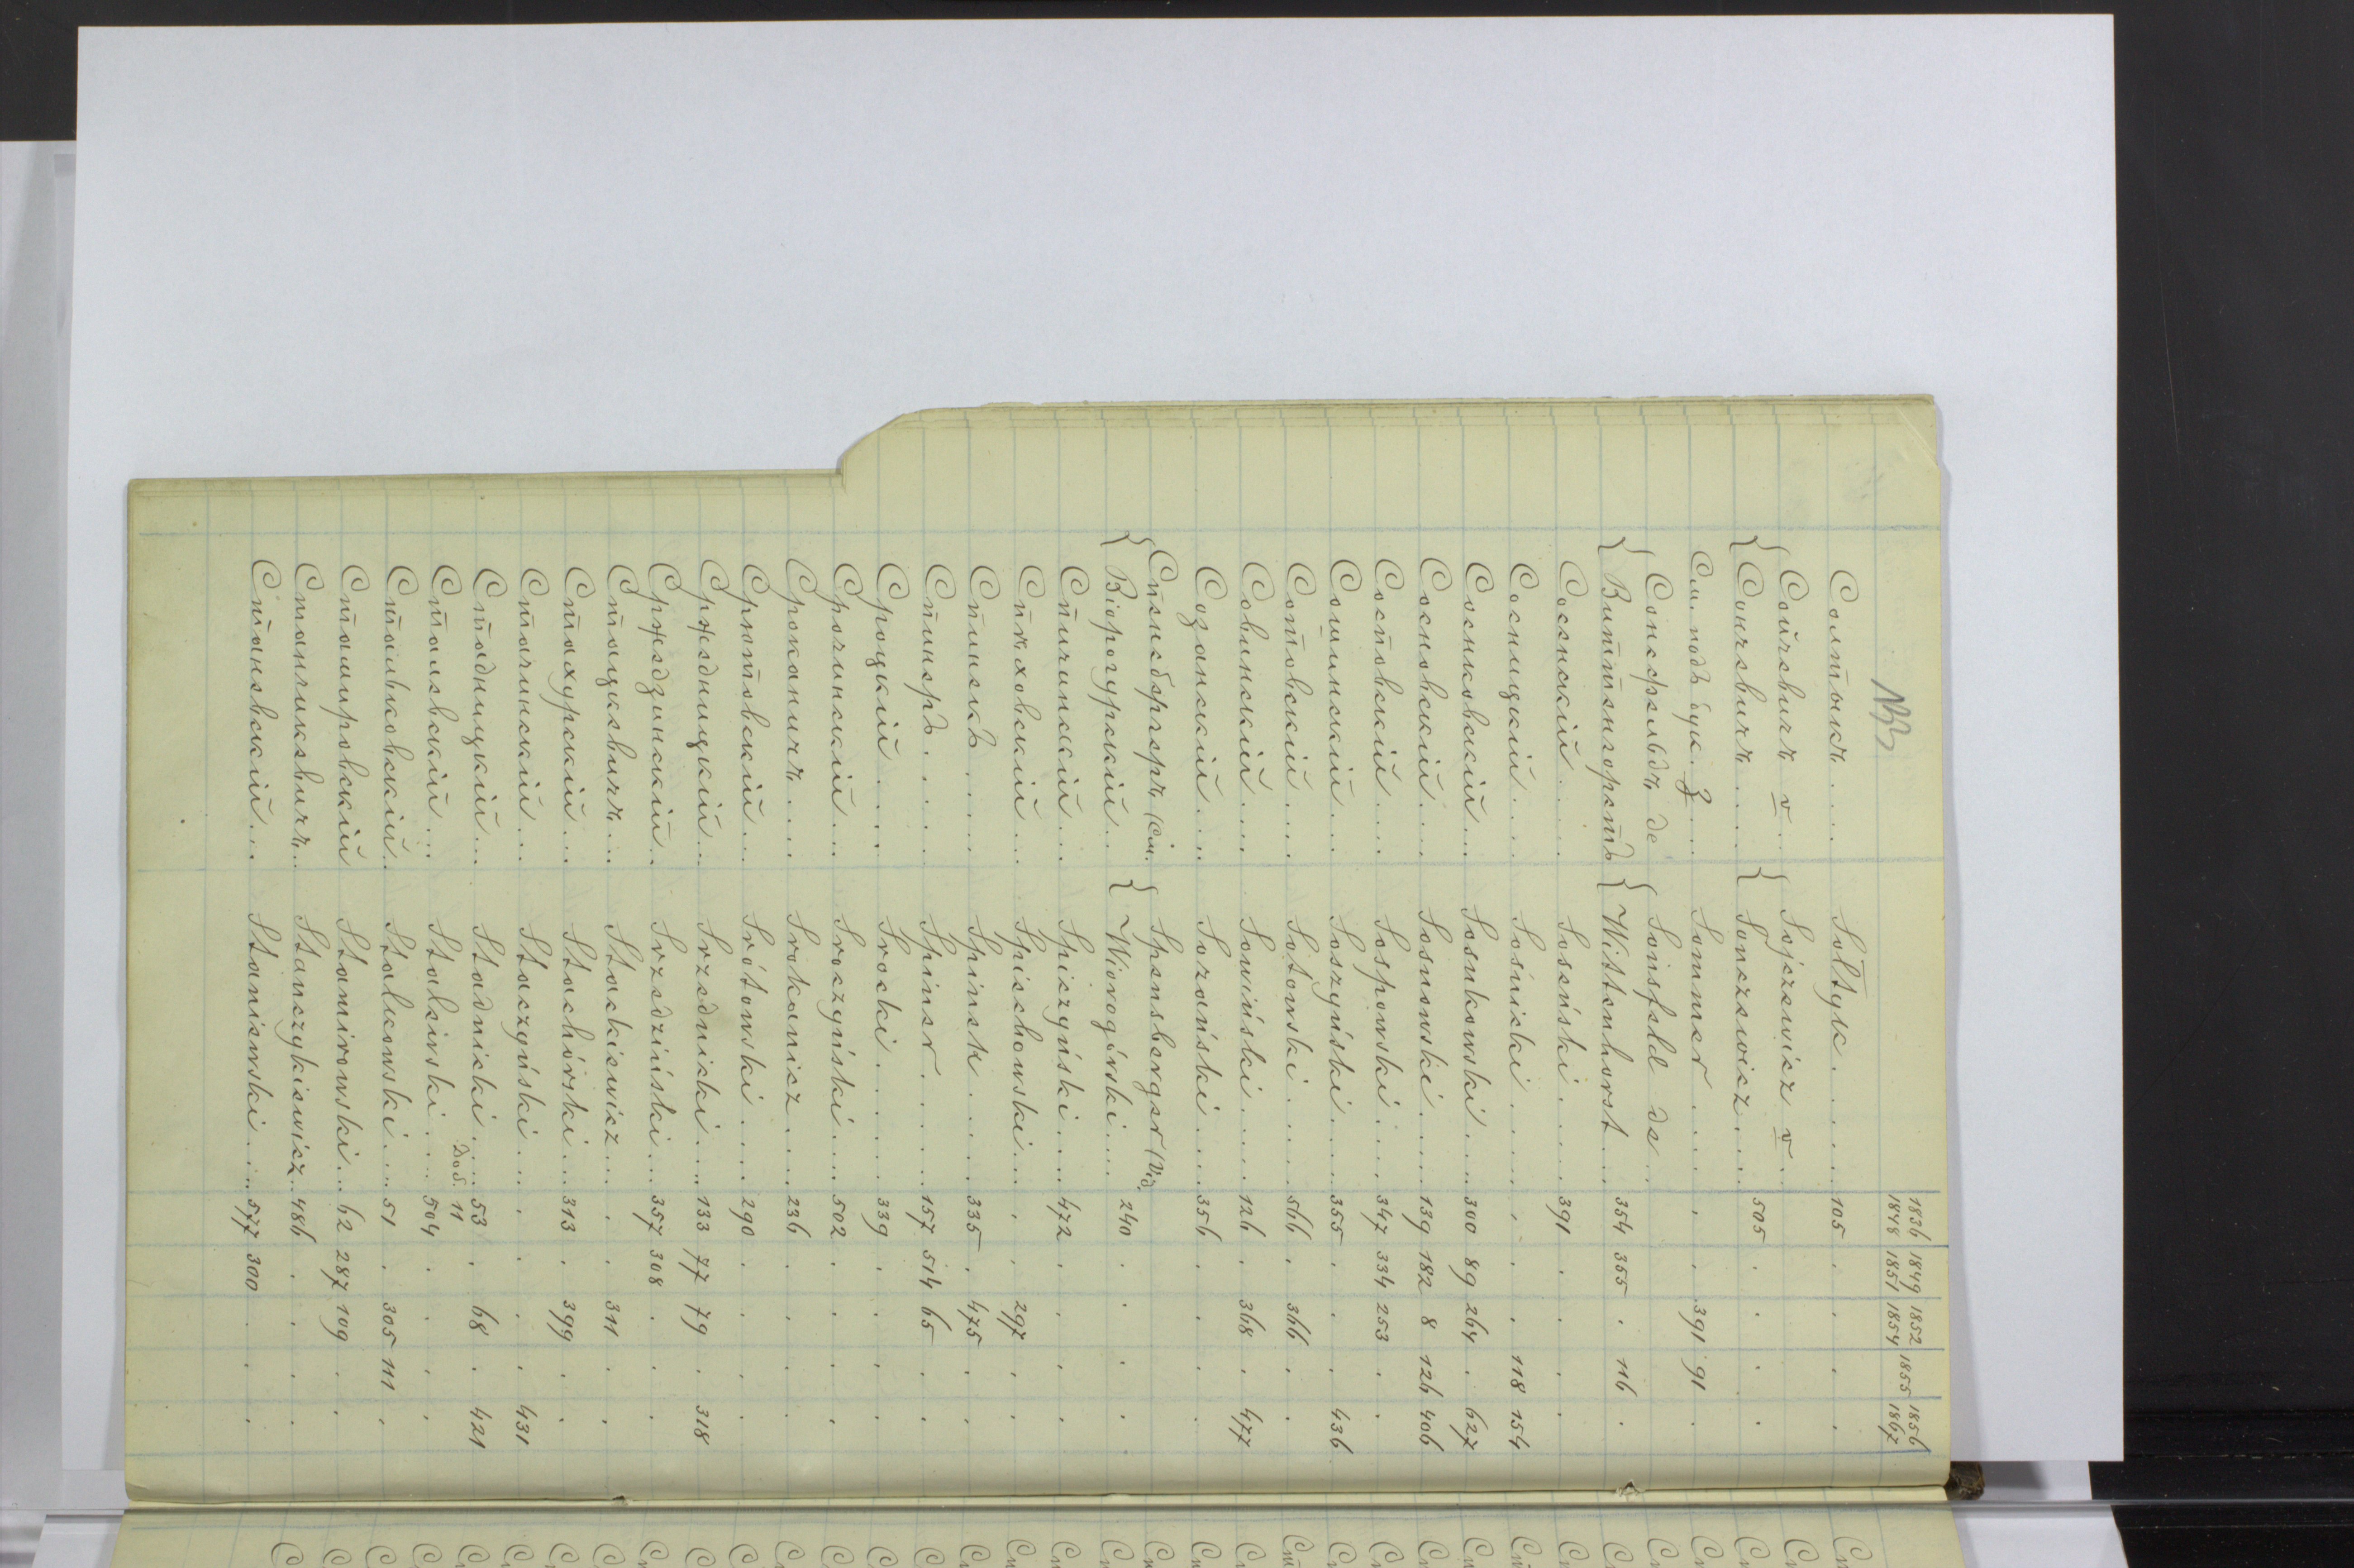 133
1836 1849 1852 1855 1856
1848 1851 1854 1867
Солтыкъ.... Sołtyk..... 105 . . . .
Сойчевичъ v... Sojczewicz v...
Сончевичъ.... Sonczewicz.... 505 . . . .
См. подъ бук. З.... Sommer..... . . 391 91 .
Сонсфельдъ де Soinsfeld de...
Виттенгорстъ Wittenhorst... 354 355 . 116 .
Сосенскій..... Soseński..... 391 . . . .
Сосницкій.... Sośnicki..... . . . 118 154
Соснковскій... Sosnkowski... 300 89 264 . 627
Сосновскій.... Sosnowski.... 139 182 8 126 406
Сосповскій.... Sospowski.... 347 334 253 . .
Сошинскій... Soszyński.... 355 . . . 436
Сотовскій.... Sotowski..... 566 . 366 . .
Совинскій.... Sowiński..... 126 . 368 . 477
Созанскій.... Sozański.... 356 . . . .
Спенсбергеръ (См. Spensberger (Vid.
Віорогурскій.. Wiorogórski.... 240 . . . .
Спичинскій... Spiczyński.... 472 . . . .
Спѣховскій... Spiechowski... . . 297 . .
Спинекъ..... Spinek...... 335 . 475 . .
Спинеръ..... Spiner...... 157 514 65 . .
Сроцкій..... Srocki...... 339 . . . .
Срочинскій... Sroczyński.... 502 . . . .
Сроканичъ.... Srokanicz.... 236 . . . .
Сротовскій... Srótowski.... 290 . . . .
Сржедницкій... Srzednicki.... 133 77 79 . 318
Сржедзинскій.. Srzedziński... 357 308 . . .
Стацкевичъ... Stackiewicz... . . 311 . .
Стахурскій... Stachórski... 313 . 399 . .
Стачинскій... Staczyński.... . . . . 431
Стадницкій... Stadnicki.... 53 . 68 . 421
Dod. 11
Сталевскій... Stalewski.... 504 . . . .
Стальковскій.. Stalkowski.... 51 . 305 111 .
Стамировскій Stamirowski... 62 287 109 . .
Станчикевичъ.. Stanczykiewicz.. 486 . . . .
Станевскій... Staniewski.... 577 300 . . .